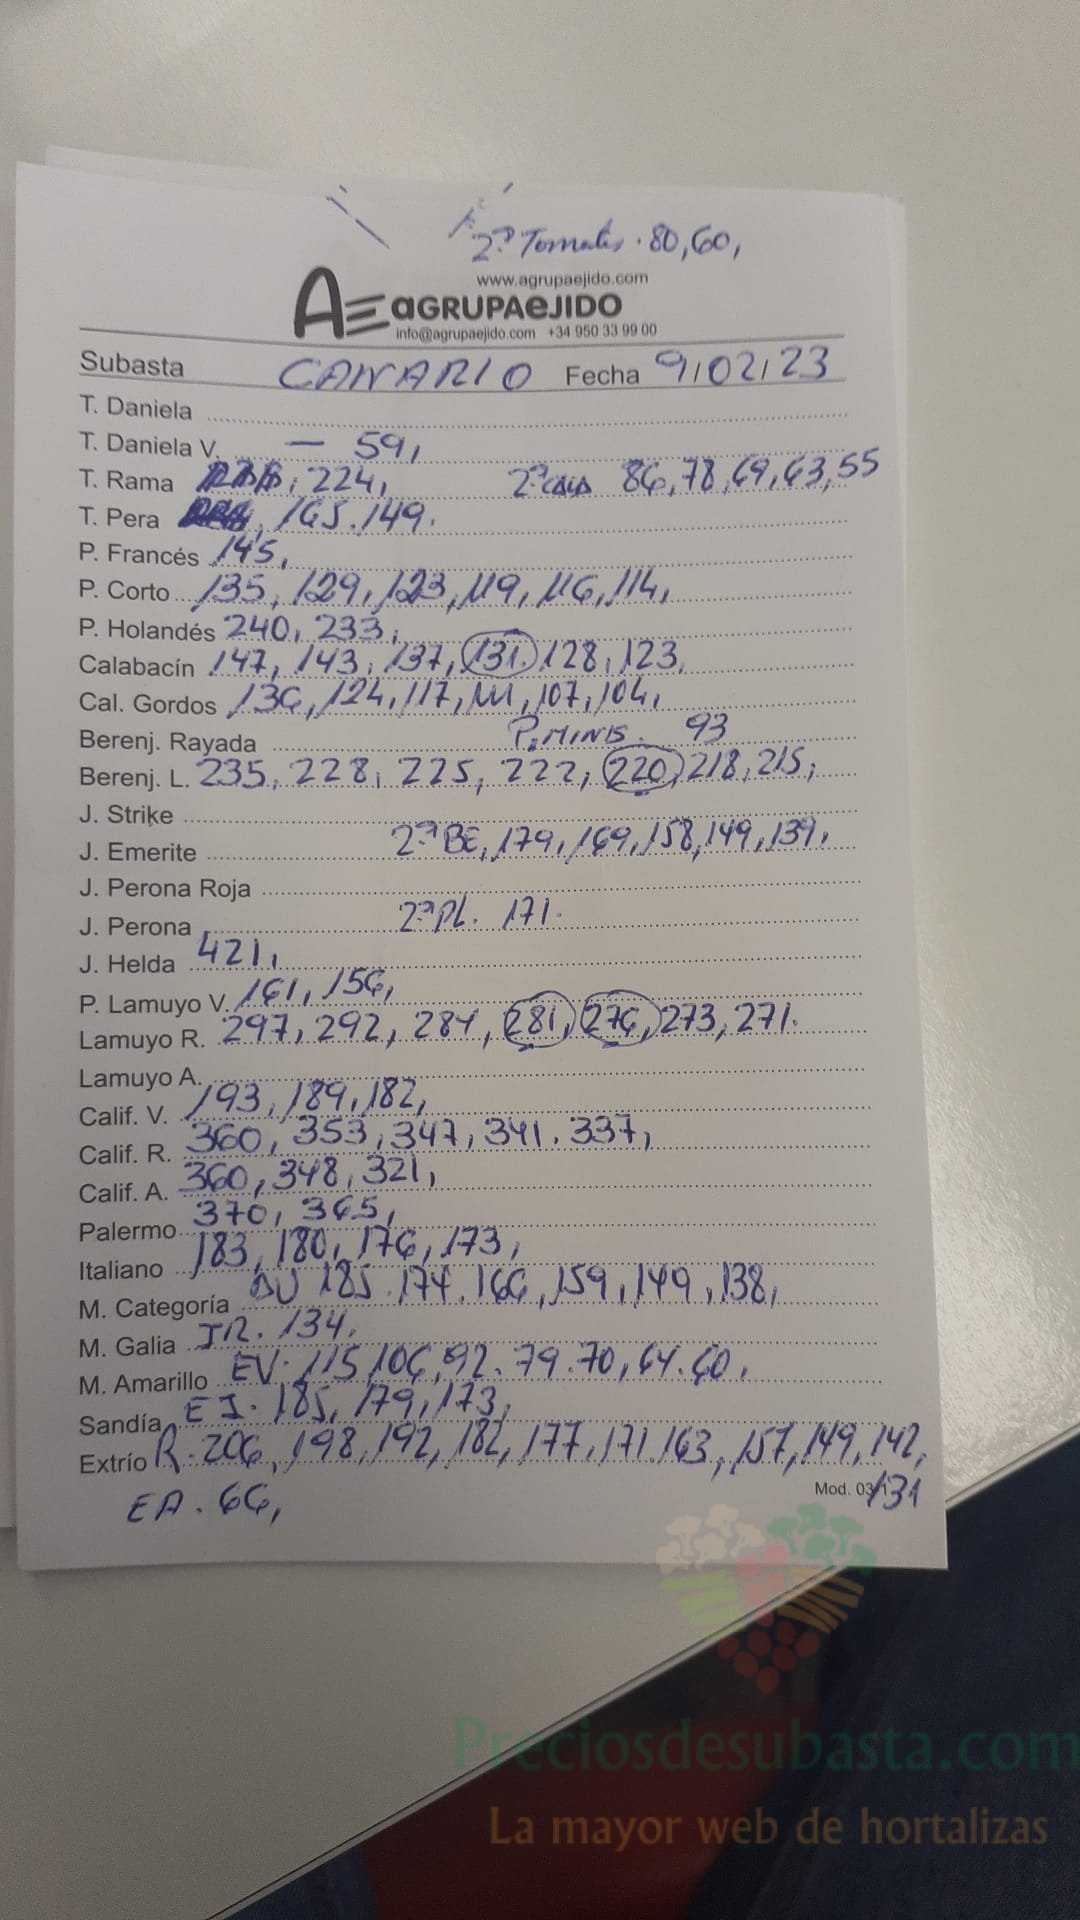 2ª Tomates. 80, 60,
www.agrupaejido.com
AE aGRUPAeJIDO
info@agrupaejido.com +34 950 33 99 00
Subasta CANARIO Fecha 9/02/23
T. Daniela
T. Daniela V. — 59,
T. Rama , 224, 2ª 86, 78, 69, 63, 55
T. Pera , 165. 149.
P. Francés 145,
P. Corto 135, 129, 123, 119, 116, 114,
P. Holandés 240, 233,
Calabacín 147, 143, 137, 131, 128, 123,
Cal. Gordos 136, 124, 117, 111, 107, 104,
Berenj. Rayada P. MINIS. 93
Berenj. L. 235, 228, 225, 222, 220, 218, 215,
J. Strike
J. Emerite 2ª BE, 179, 169, 158, 149, 139,
J. Perona Roja
J. Perona 2ª PL. 171.
J. Helda 421,
P. Lamuyo V. 161, 156,
Lamuyo R. 297, 292, 284, 281, 276, 273, 271.
Lamuyo A.
Calif. V. 193, 189, 182,
Calif. R. 360, 353, 347, 341. 337,
Calif. A. 360, 348, 321,
Palermo 370, 365,
Italiano 183, 180, 176, 173,
M. Categoría 185. 174. 166, 159, 149, 138,
M. Galia JR. 134,
M. Amarillo EV. 115, 106, 92. 79. 70, 64. 60,
Sandía EJ. 185, 179, 173,
Extrío R. 206, 198, 192, 182, 177, 171. 163, 157, 149, 142,
Mod. 03 131
EA. 66,
Preciosdesubasta.com
La mayor web de hortalizas